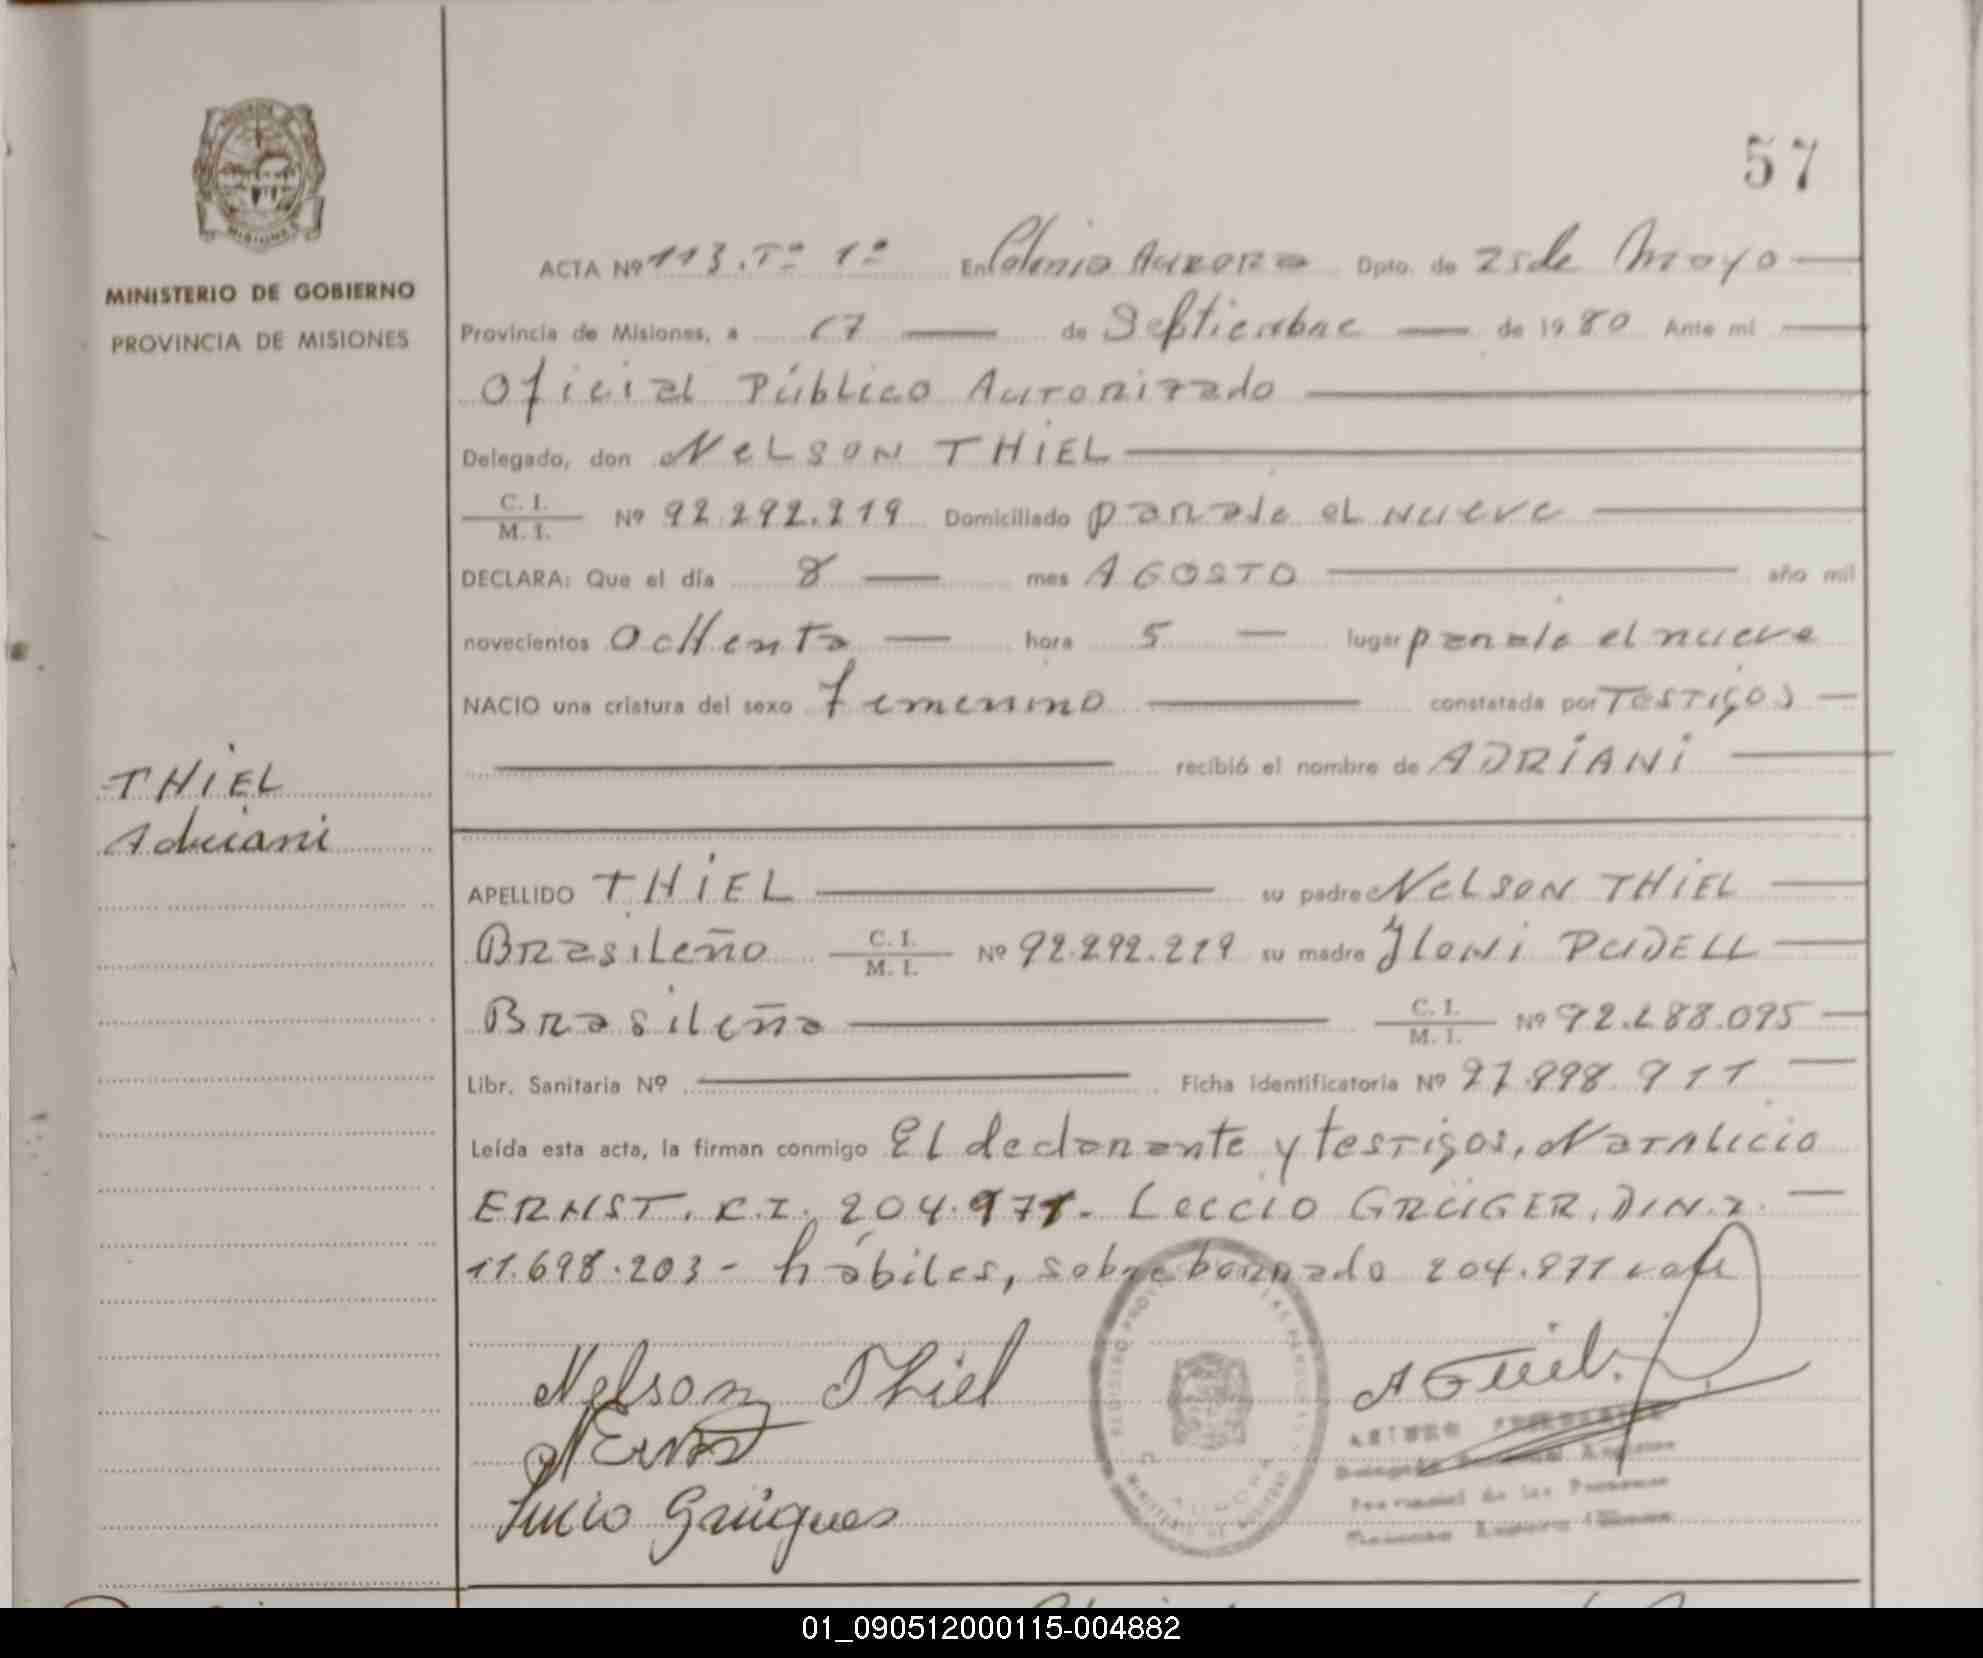 57
MINISTERIO DE GOBIERNO
PROVINCIA DE MISIONES
ACTA Nº 113. Tº 1º En Colonia Aurora Dpto. de 25 de Mayo
Provincia de Misiones, a 17 de Septiembre de 1980 Ante mi
Oficial Público Autorizado
Delegado, don NELSON THIEL
C. I.
M. I. Nº 92.292.219 Domiciliado paraje el nueve
DECLARA: Que el día 8 mes AGOSTO año mil
novecientos ocHenta hora 5 lugar paraje el nueve
NACIO una criatura del sexo femenino constatada por Testigos
recibió el nombre de ADRIANI
THIEL
Adriani
APELLIDO THIEL su padre NELSON THIEL
Brasileño C. I.
M. I. Nº 92.292.219 su madre Iloni PUDELL
Brasileña C. I.
M. I. Nº 92.288.095
Libr. Sanitaria Nº Ficha identificatoria Nº 27.998.911
Leída esta acta, la firman conmigo El declarante y testigos, NATALICIO
ERNST. C.I. 204.971. GRÜGER. D.N.I.
11.698.203 - hábiles, sobreborrado 204.971 vale
Nelson Thiel
NErnst
MISIONES
01_090512000115-004882